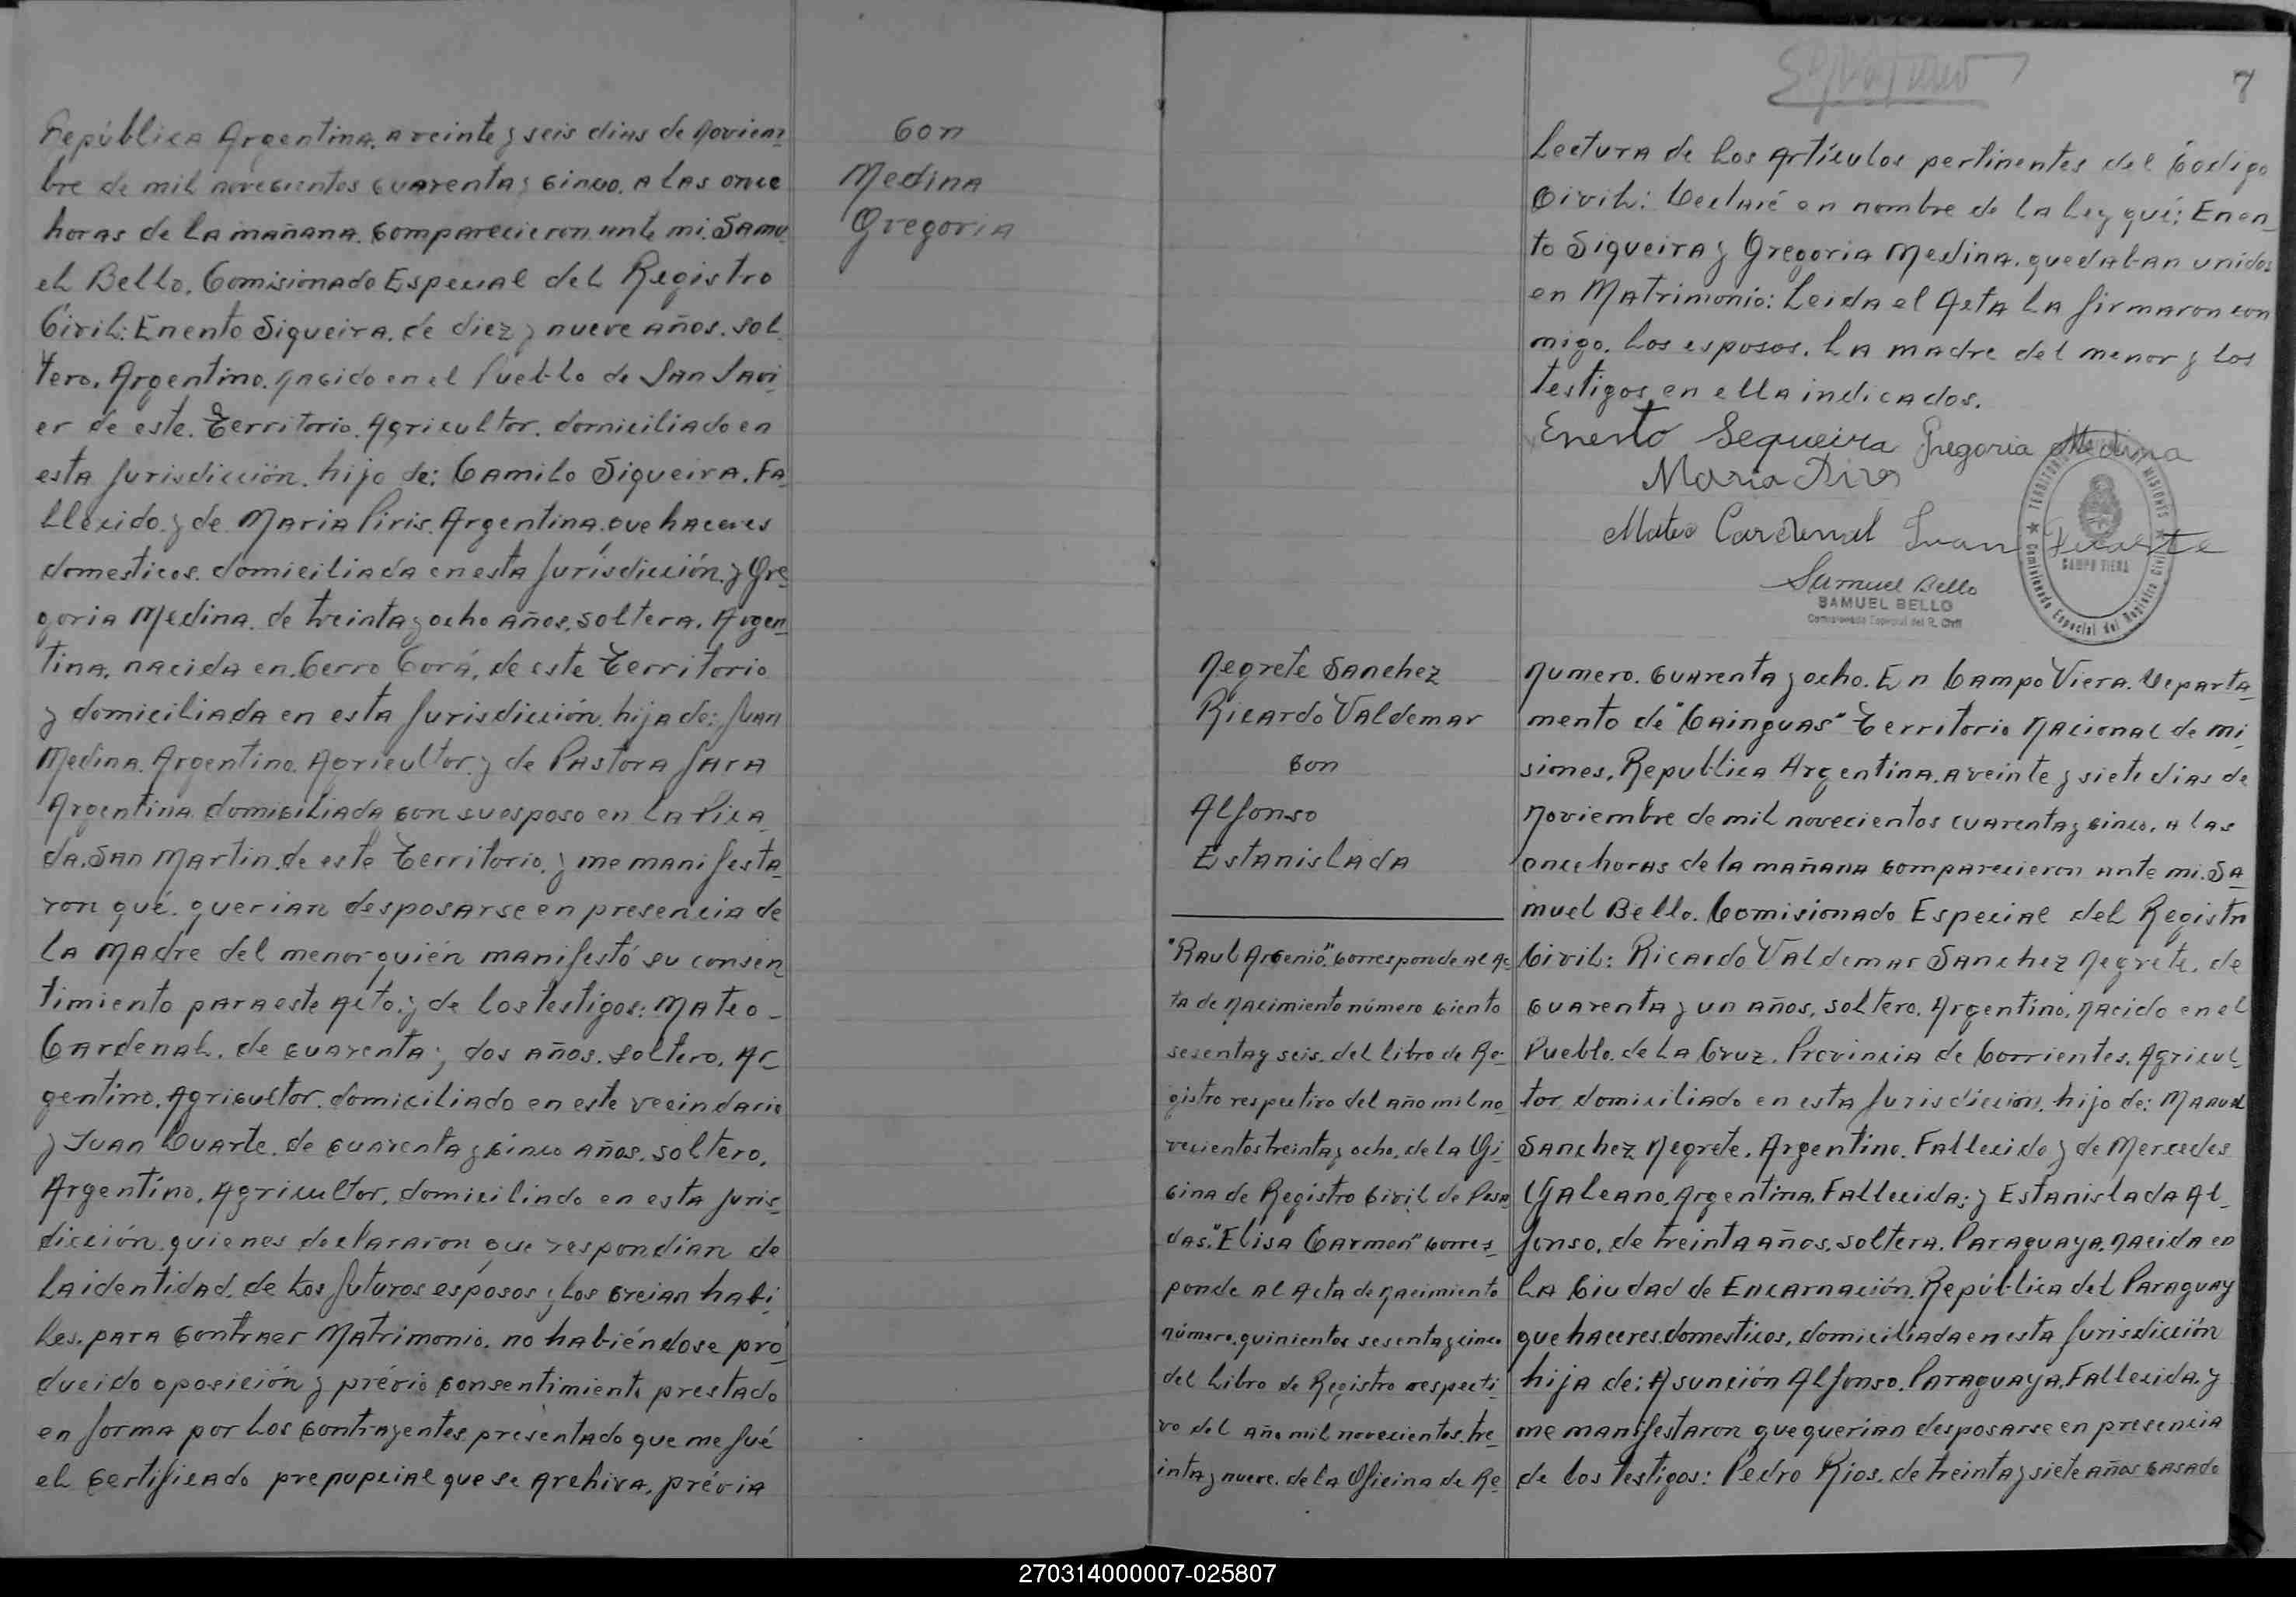 República Argentina, a veinte y seis dias de Noviem
bre de mil novecientos cuarenta y cinco. a las once
horas de la mañana. Comparecieron ante mi. Samu
el Bello. Comisionado Especial del Registro
Civil: Enento Siqueira. de diez y nueve años. sol
tero. Argentino. nacido en el Pueblo de San Javi
er de este. Territorio. Agricultor. domiciliado en
esta Jurisdicción. hijo de: Camilo Siqueira. Fa
llecido. y de Maria Piris. Argentina. que haceres
domesticos. domiciliada en esta Jurisdicción. y Gre
goria Medina. de treinta y ocho años. soltera. Argen
tina. nacida en. Cerro Corá. de este Territorio
y domiciliada en esta Jurisdicción. hija de: Juan
Medina. Argentino. Agricultor. y de Pastora Jara
Argentina. domiciliada con su esposo en la Pica
da. San Martin. de este Territorio. y me manifesta
ron qué. querian desposarse en presencia de
la Madre del menor quién manifestó su consen
timiento para este Acto. y de los testigos: Mateo-
Cardenal. de cuarenta y dos años. soltero. Ar
gentino. Agricultor. domiciliado en este vecindario
y Juan Duarte. de cuarenta y cinco años. soltero.
Argentino. Agricultor. domiciliado en esta Juris
dicción. quienes declararon que respondian de
la identidad. de los futuros esposos y los creian habi
les. para contraer Matrimonio. no habiéndose pro
ducido oposición y prévio consentimiento prestado
en forma por los contrayentes. presentado que me fué
el certificado prenupcial que se Archiva. prévia
Con
Medina
Gregoria
7
Lectura de los Artículos pertinentes del Codigo
Civil: Declaré en nombre de la Ley qué: Enen
to Siqueira y Gregoria Medina. quedaban unidos
en Matrimonio: Leida el Acta la firmaron con
migo. los esposos. la madre del menor y los
testigos en ella indicados.
Enento Sequeira Gregoria Medina
Maria Piris
Mateo Cardenal Juan Duarte
Samuel Bello
SAMUEL BELLO
Comisionado Especial del R. Civil
TERRITORIO MISIONES
CAMPO VIERA
Comisionado Especial del Registro Civil
Negrete Sanchez
Ricardo Valdemar
Con
Alfonso
Estanislada
"Raul Arsenio". corresponde al Ac
ta de Nacimiento número ciento
sesenta y seis. del libro de Re-
gistro respectivo del año mil no
vecientos treinta y ocho. de la Ofi
cina de Registro Civil de Posa
das. "Elisa Carmen" corres
ponde al Acta de nacimiento
número. quinientos sesenta y cinco
del Libro de Registro respecti
vo del año mil novecientos. tre
inta y nueve. de la Oficina de Re
Numero. cuarenta y ocho. En Campo Viera. Departa
mento de "Cainguas" Territorio Nacional de Mi
siones. Republica Argentina. a veinte y siete dias de
Noviembre de mil novecientos cuarenta y cinco. a las
once horas de la mañana comparecieron ante mi. Sa
muel Bello. Comisionado Especial del Registro
Civil: Ricardo Valdemar Sanchez Negrete. de
cuarenta y un años. soltero. Argentino. Nacido en el
Pueblo. de La Cruz. Provincia de Corrientes. Agricul
tor domiciliado en esta Jurisdicción. hijo de: Manuel
Sanchez Negrete. Argentino. Fallecido y de Mercedes
Galeano. Argentina. Fallecida: y Estanislada Al
fonso. de treinta años. soltera. Paraguaya. nacida en
la Ciudad de Encarnación. República del Paraguay
que haceres domesticos. domiciliada en esta Jurisdicción
hija de: Asunción Alfonso. Paraguaya. Fallecida. y
me manifestaron que querian desposarse en presencia
de los testigos: Pedro Rios. de treinta y siete años casado
270314000007-025807